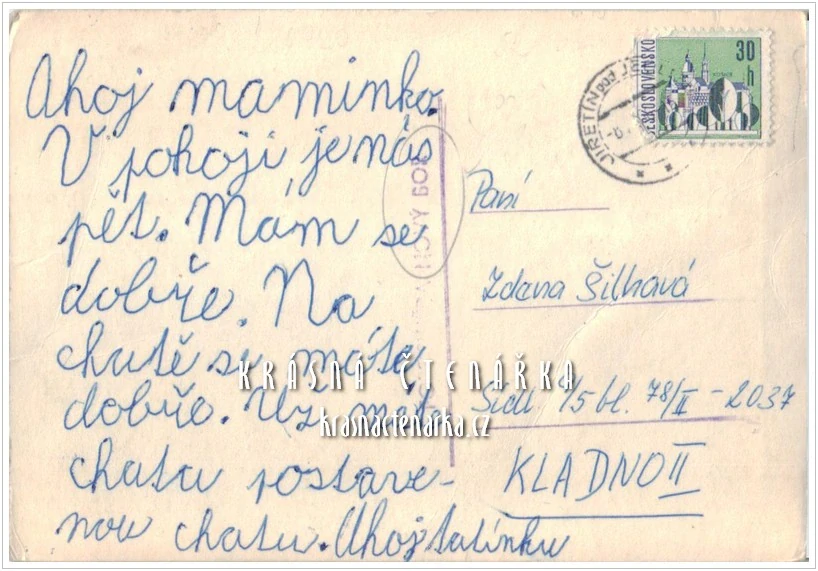 Ahoj maminko.
V pokoji je nás
pět. Mám se
dobře. Na
chatě se máte
dobře. Už máte
chatu postave-
nou chatu. Ahoj tatínku
ČESKOSLOVENSKO
30
h
JIŘETÍN pod
NOVÝ BOR
Paní
Zdena Šilhavá
Sídl. 1/5 bl. 78/II - 2037
KLADNO II
KRÁSNÁ ČTENÁŘKA
krasnactenarka.cz